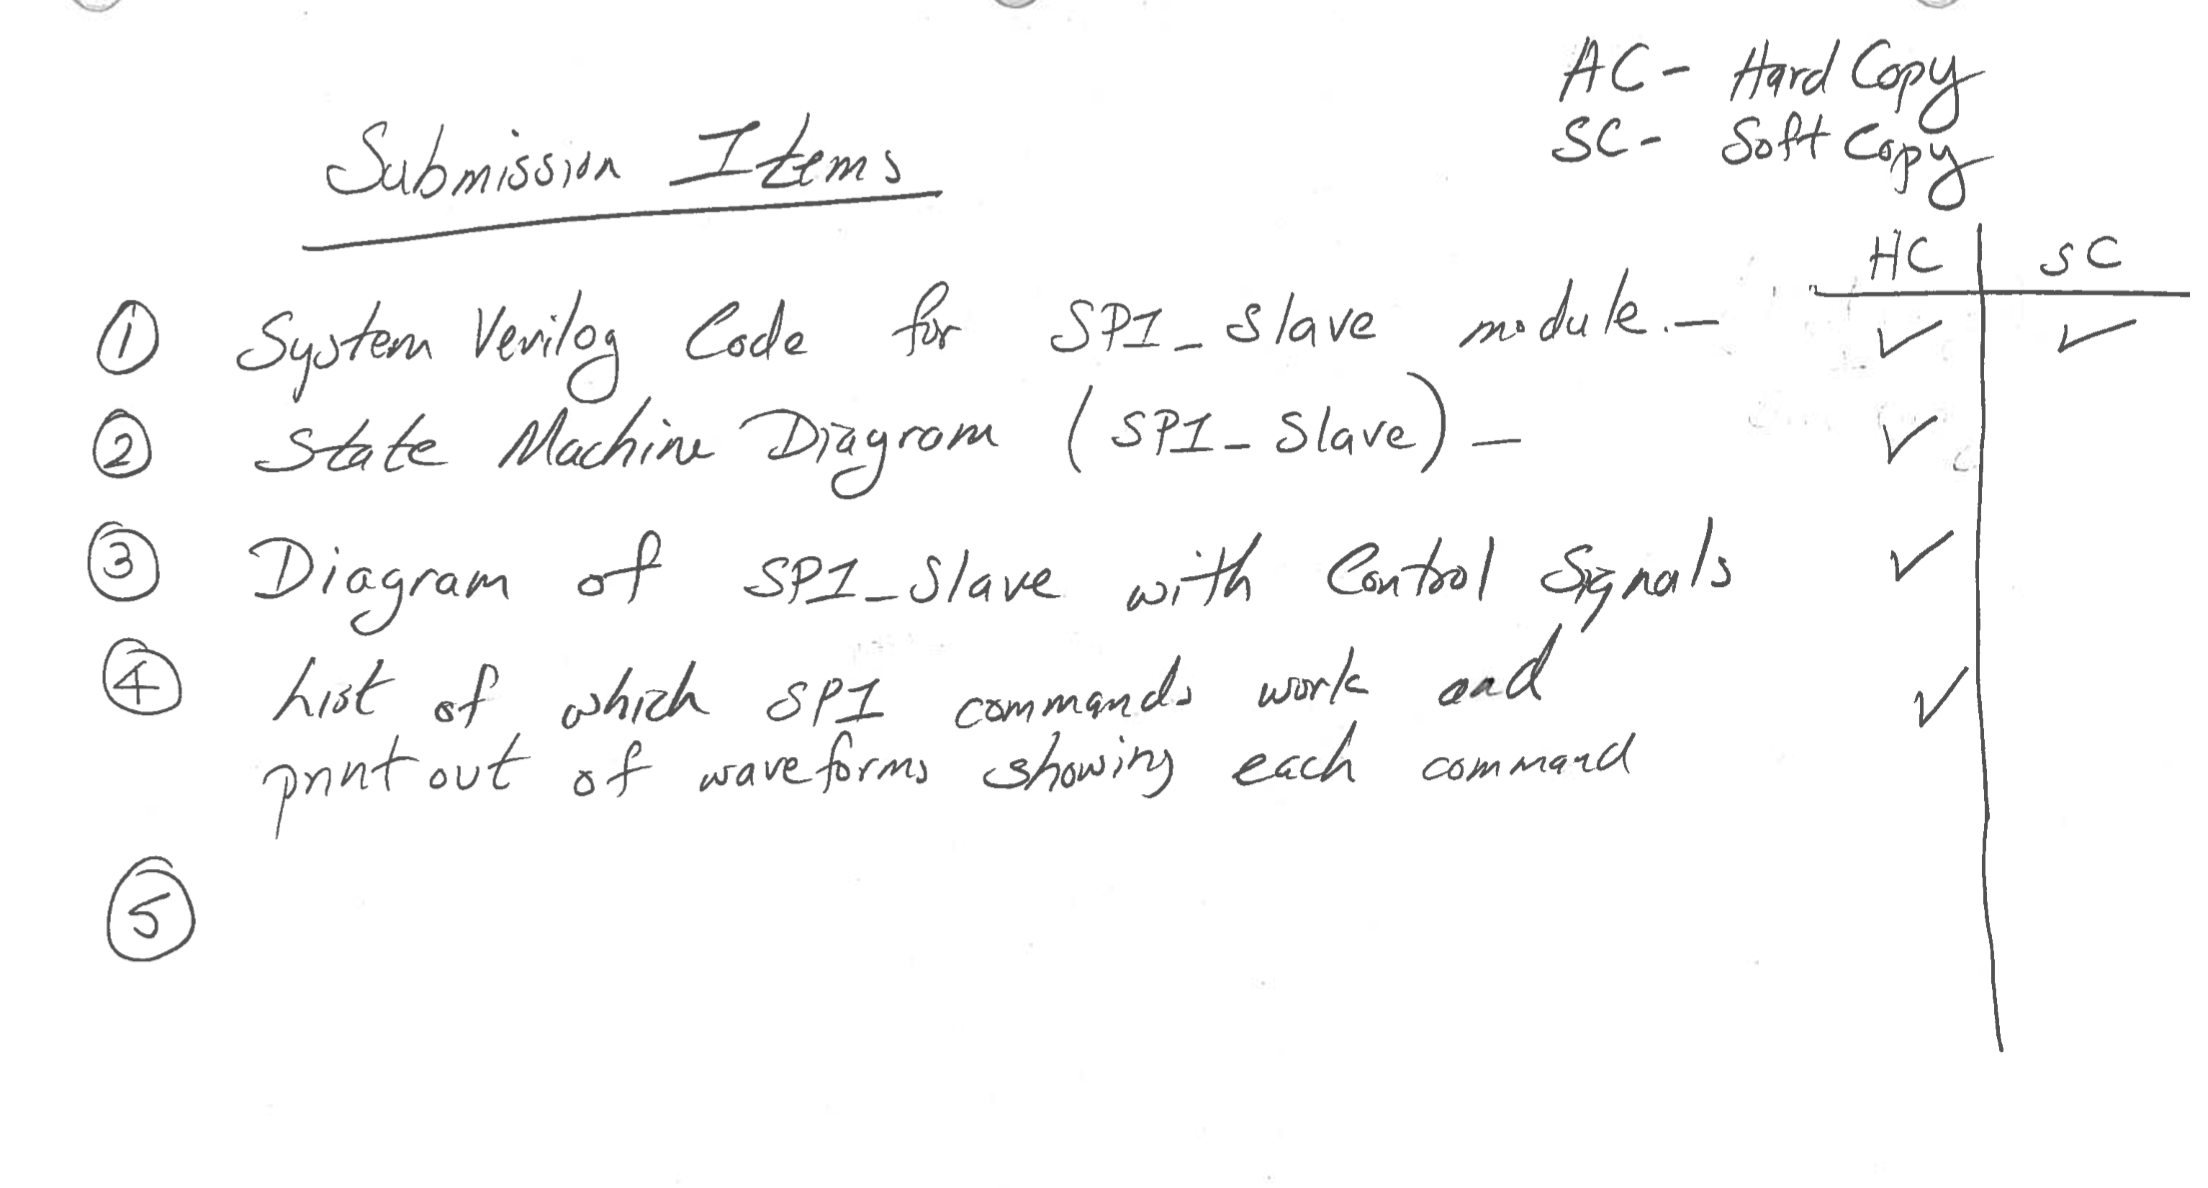 AC- Hard Copy
SC- Soft Copy
Submission Items
HC SC
① System Verilog Code for SPI_Slave module. - ✓ ✓
② State Machine Diagram (SPI_Slave) - ✓
③ Diagram of SPI_Slave with Control Signals ✓
④ List of which SPI commands work and ✓
print out of waveforms showing each command
⑤